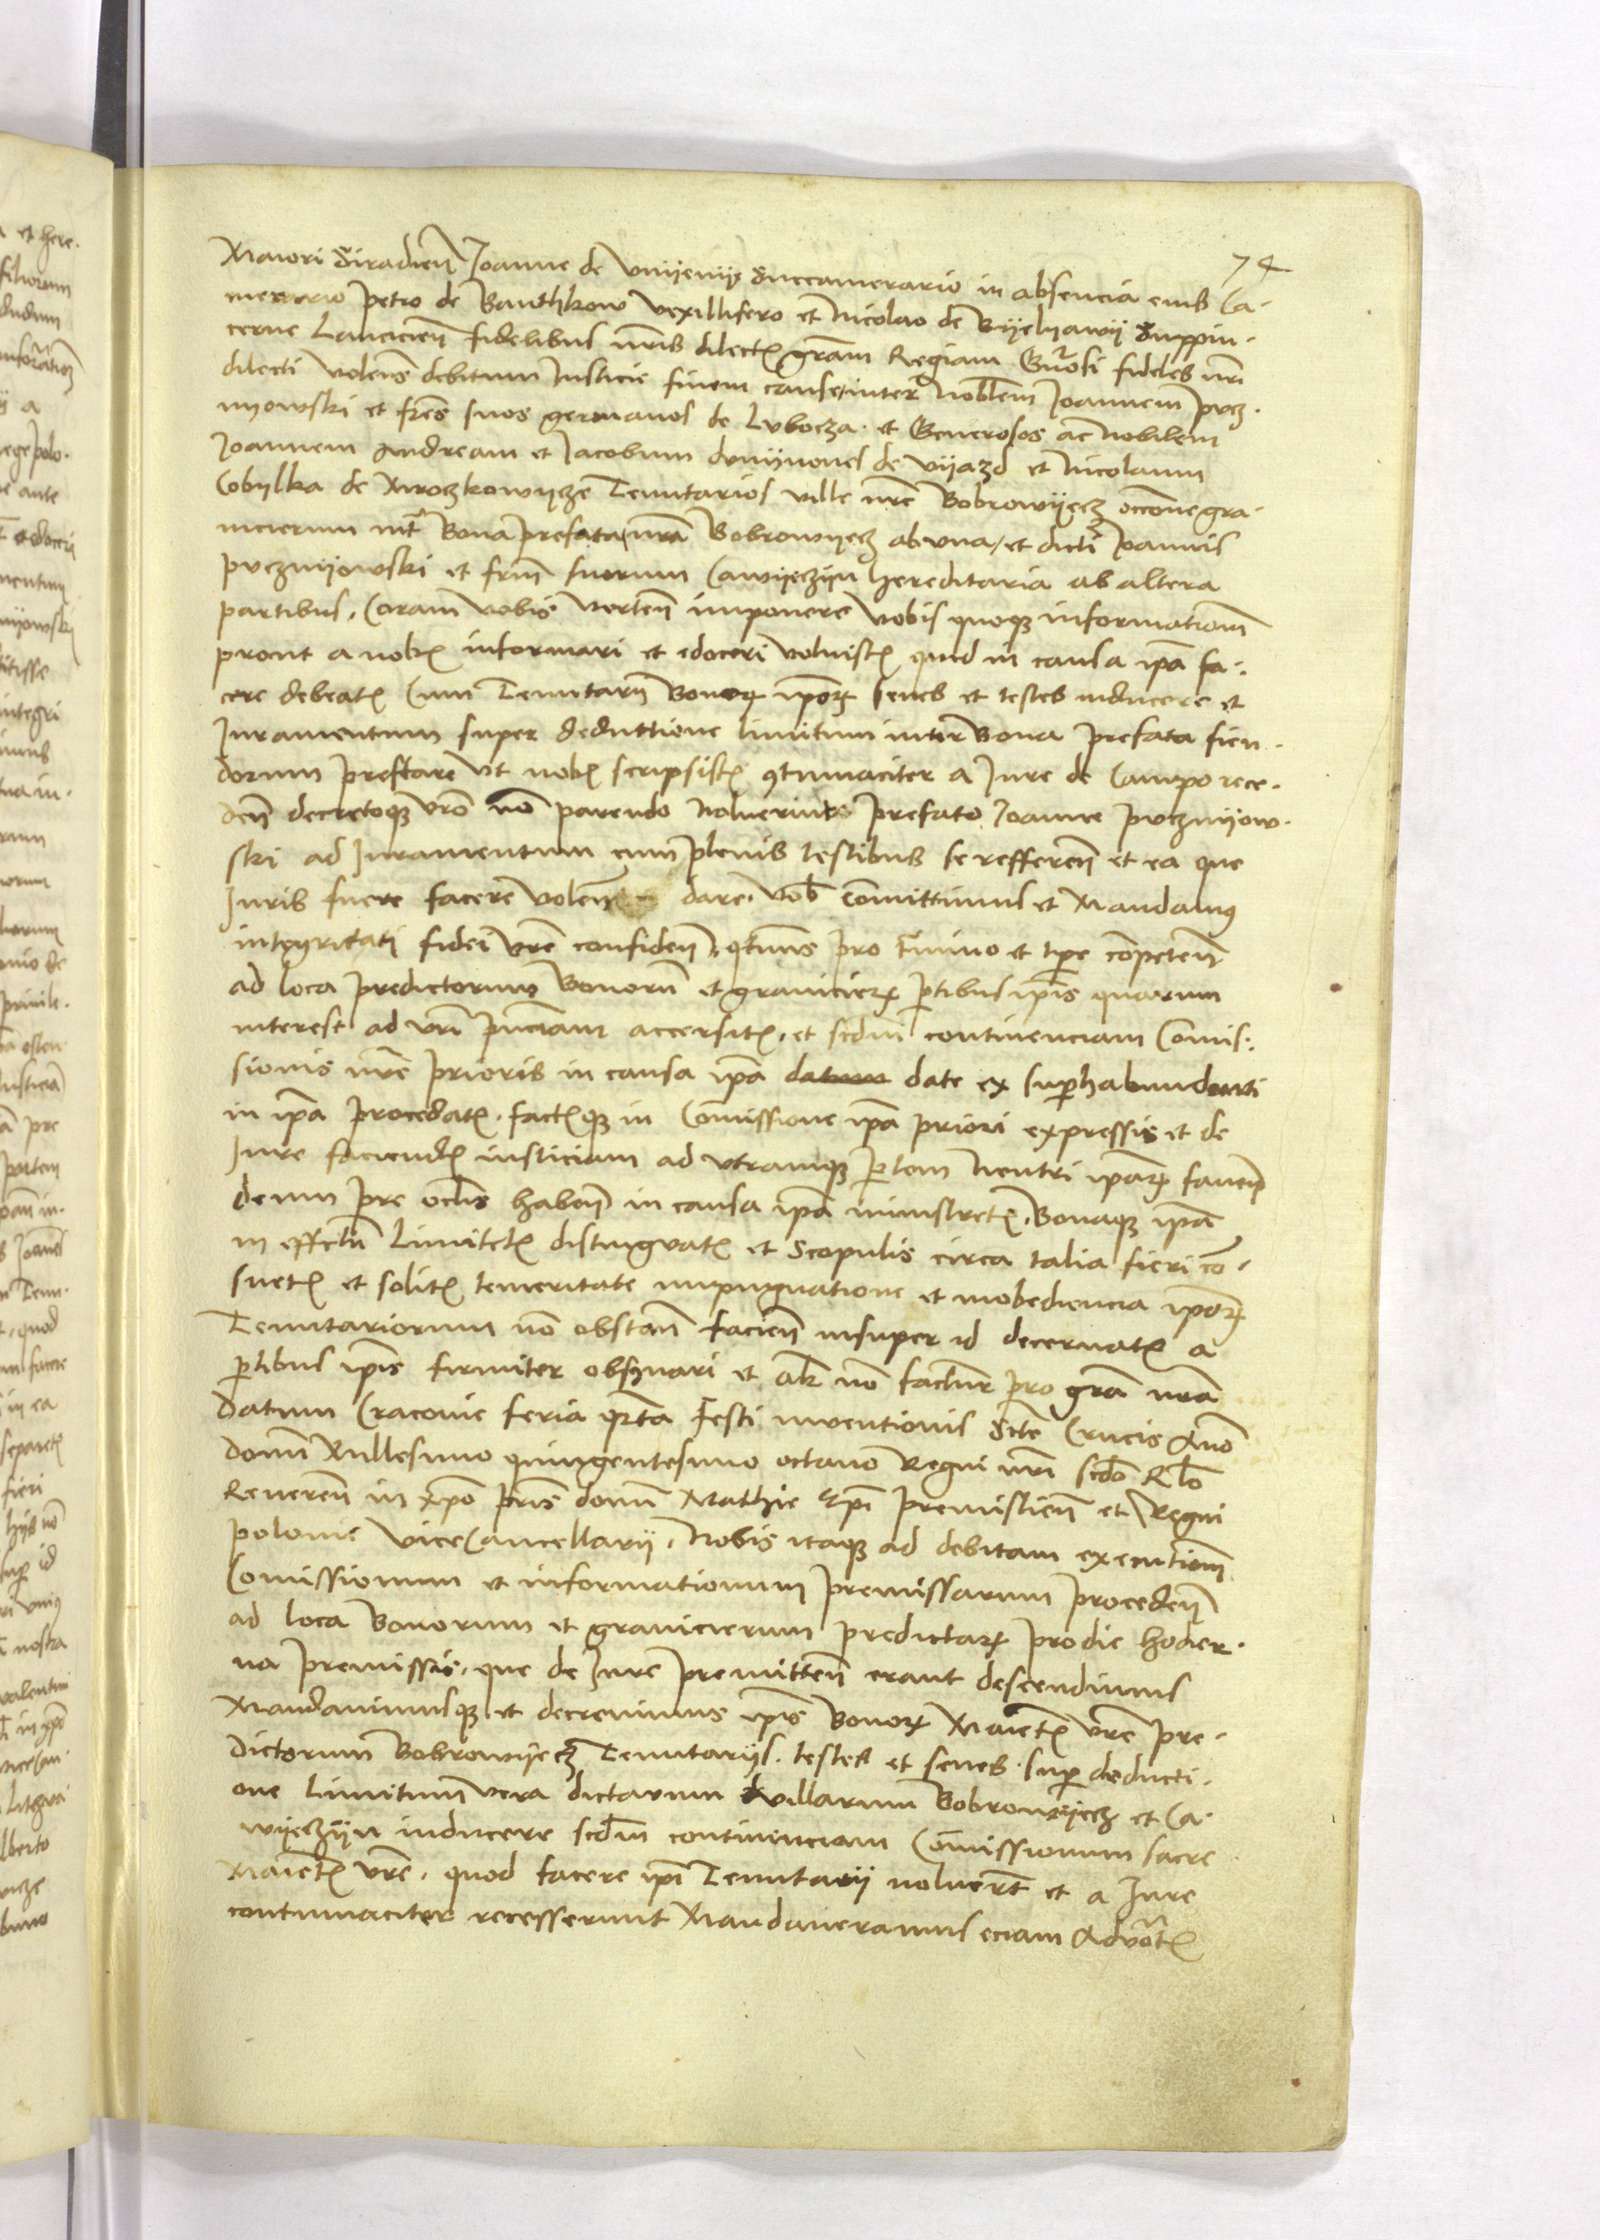 74
Maiori Siradien̄ Joanne de Vnijenije Succamerario in absencia eius Ca-
merario Petro de Banthkow vexillifero et Nicolao de Byelyawij Suppin-
cerne Lancicien̄ fidelibus nr̄is dilectꝭ gr̄am Regiam Gn̄osi fideles nr̄i
dilecti volens debitum Justicie finem cause inter Nobilem Joannem Pucz-
nyowski et fr̄es suos germanos de Lubocza et Generosos ac nobilem
Joannem Andream et Jacobum dnijnones de Vijazd et Nicolaum
Cobylka de Mroczkowijcze Tenutarios ville nr̄e Bobrowijecz occ̄one gra-
nicierum int̄ Bona prefata nr̄a Bobrowijecz ab vna et dicti Joannis
Pucznijowski et fr̄m suorum Cawijeczijn hereditaria ab altera
partibus Coram vobis verten̄ imponere vobis quoqꝫ informationem
prout a nobꝭ informari et edoceri voluistꝭ quid in causa ip̄a fa-
cere debeatꝭ Cum Tenutarij Bonoꝝ ip̄oꝝ senes et testes inducere et
Juramentum super deductione limitum inter Bona prefata fien-
dorum prestare vt nobꝭ scripsistꝭ ꝯtumaciter a Jure de Campo rece-
den̄ decretoqꝫ vr̄o no᷑ parendo noluerint prefato Joanne Pucznijow-
ski ad Juramentum cum plenis testibus se refferen̄ et ea que
Juris fuere facere volen̄ dare vob̄ Com̄ittimus et Mandamꝰ
integritati fidei vr̄e confiden̄ qt̄nus pro t̄mino et tp̄e competen̄
ad loca predictorum Bonorū et granicieꝝ ꝑtibus ip̄is quarum
interest ad vr̄i pn̄ciam accersitꝭ et scd̄m continenciam Com̄is-
sionis nr̄e prioris in causa ip̄a datum date ex superhabundanti
in ip̄a procedatꝭ factꝭqꝫ in Com̄issione ip̄a priori expressis et de
Jure faciendꝭ iusticiam ad vtramqꝫ ꝑtem neutri ip̄aꝝ faven̄
deum pre oc̄lis haben̄ in causa ip̄a ministretꝭ Bonaqꝫ ip̄a
in effectū Limitetꝭ distinguatꝭ et Scopulis circa talia fieri co᷑-
suetꝭ et solitꝭ temeritate inpugnatione et inobediencia ip̄oꝝ
Tenutariorum no᷑ obstan̄ facien̄ insuper id decernatꝭ a
ꝑtibus ip̄is firmiter obs̄vari et al̄r no᷑ facturꝭ pro gr̄a nr̄a
Datum Cracovie feria qr̄ta Festi inventionis Sc̄te Crucis Anno
domī Millesimo quingentesimo octavo Regni nr̄i scd̄o Rl̄o
Reveren̄ in xp̄o pr̄is domī Mathie Ep̄i Premislien̄ et Regni
Polonie ViceCancellarij Nobis itaqꝫ ad debitam executionem
Com̄issionum et informationum premissarum proceden̄
ad loca Bonorum et granicierum predictaꝝ pro die hodier-
na premissis que de Jure premitten̄ erant descendimus
Mandavimusqꝫ et decrevimus ip̄is Bonoꝝ Maiestꝭ vr̄e pre-
dictorum Bobrowijecz Tenutarijs testes et senes super deducti-
one Limitum vera dictarum villarum Bobrowijecz et Ca-
wijeczijn inducere scd̄m continenciam Com̄issionum sacre
Maiestꝭ vr̄e quod facere ip̄i Tenutarij noluerūt et a Jure
contumaciter recesserunt Mandaveramus eciam Advōtꝭ